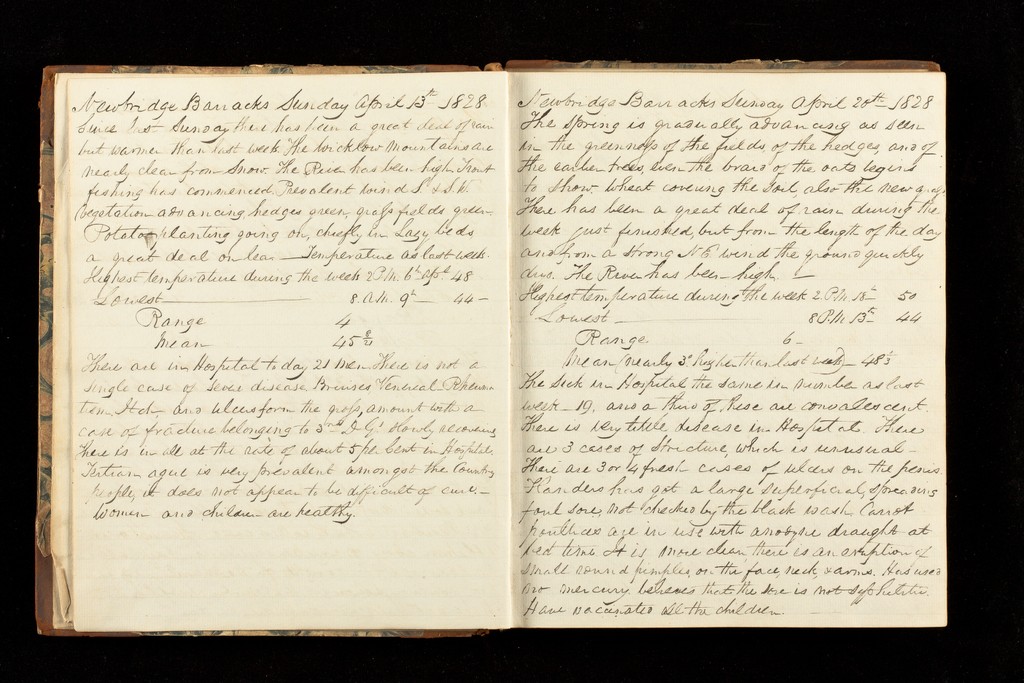 Newbridge Barracks Sunday April 13th 1828
Since last Sunday there has been a great deal of rain
but warmer than last week. The Wicklow Mountains are
nearly clear from Snow. The River has been high Trout
fishing has commenced. Prevalent wind S. & S.W.
Vegetation advancing hedges green, grass fields green
Potato planting going on, chiefly in Lazy beds
a great deal on lea — Temperature as last week.
Highest temperature during the week 2 P.M. 6th Apl 48
Lowest — 8 A.M. 9th — 44 —
Range 4
Mean 45 8/21
There are in Hospital to day 21 Men There is not a
single case of severe disease Bruises Venereal Rheuma
tism Itch and ulcers form the gross amount with a
case of fracture belonging to 3rd D.Gs slowly recovering
There is in all at the rate of about 5 per Cent in Hospital.
Tertian ague is very prevalent amongst the Country
People, it does not appear to be difficult of cure —
Women and children are healthy.
Newbridge Barracks Sunday April 20th 1828
The Spring is gradually advancing as seen
in the greenness of the fields, of the hedges, and of
the earlier trees, even the braid of the oats begins
to show. wheat covering the Soil also the new grass
There has been a great deal of rain during the
week just finished, but from the length of the day
and from a strong N.E. wind the ground quickly
dries. The River has been high. —
Highest temperature during the week 2 P.M 18th 50
Lowest — 8 P.M. 13th — 44
Range 6 —
Mean (nearly 3° higher than last week) — 48 1/3
The Sick in Hospital the same in number as last
week — 19, and a third of these are convalescent.
There is very little disease in Hospital. There
are 3 cases of Stricture, which is unusual —
There are 3 or 4 fresh cases of ulcers on the penis.
Flanders has got a large superficial, spreading
foul sore, not checked by the black wash. Carrot
poultices are in use with anodyne draught at
bed time. It is more clean, there is an eruption of
small round pimples, on the face, neck, & arms. Has used
no mercury, believes that the sore is not syphilitic.
Have vaccinated all the children.